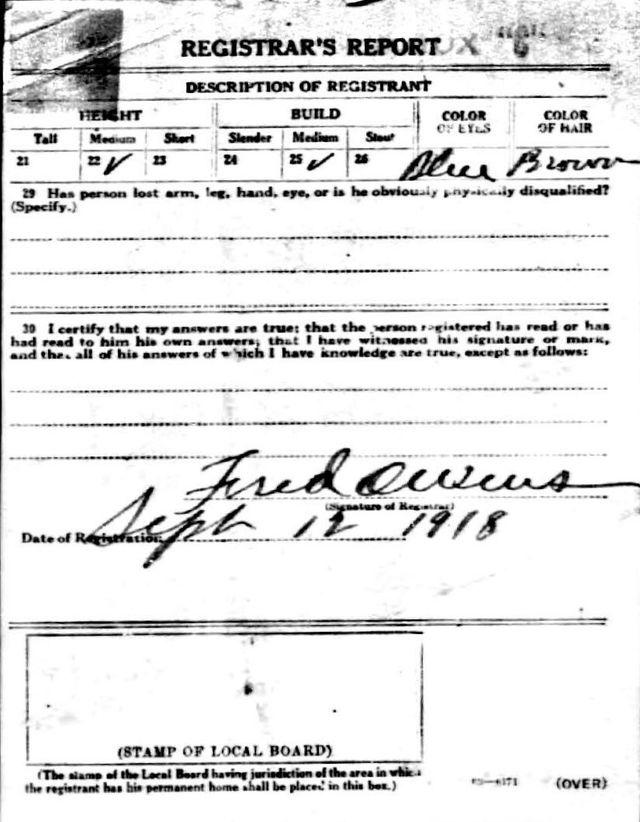 REGISTRAR'S REPORT
DESCRIPTION OF REGISTRANT
HEIGHT BUILD COLOR OF EYES COLOR OF HAIR
Tall Medium Short Slender Medium Stout
21 22 ✓ 23 24 25 ✓ 26 Blue Brown
29 Has person lost arm, leg, hand, eye, or is he obviously physically disqualified?
(Specify.)
30 I certify that my answers are true; that the person registered has read or has
had read to him his own answers; that I have witnessed his signature or mark,
and that all of his answers of which I have knowledge are true, except as follows:
Fred Owens
(Signature of Registrar)
Date of Registration Sept 12 1918
(STAMP OF LOCAL BOARD)
(The stamp of the Local Board having jurisdiction of the area in which
the registrant has his permanent home shall be placed in this box.)
(OVER)